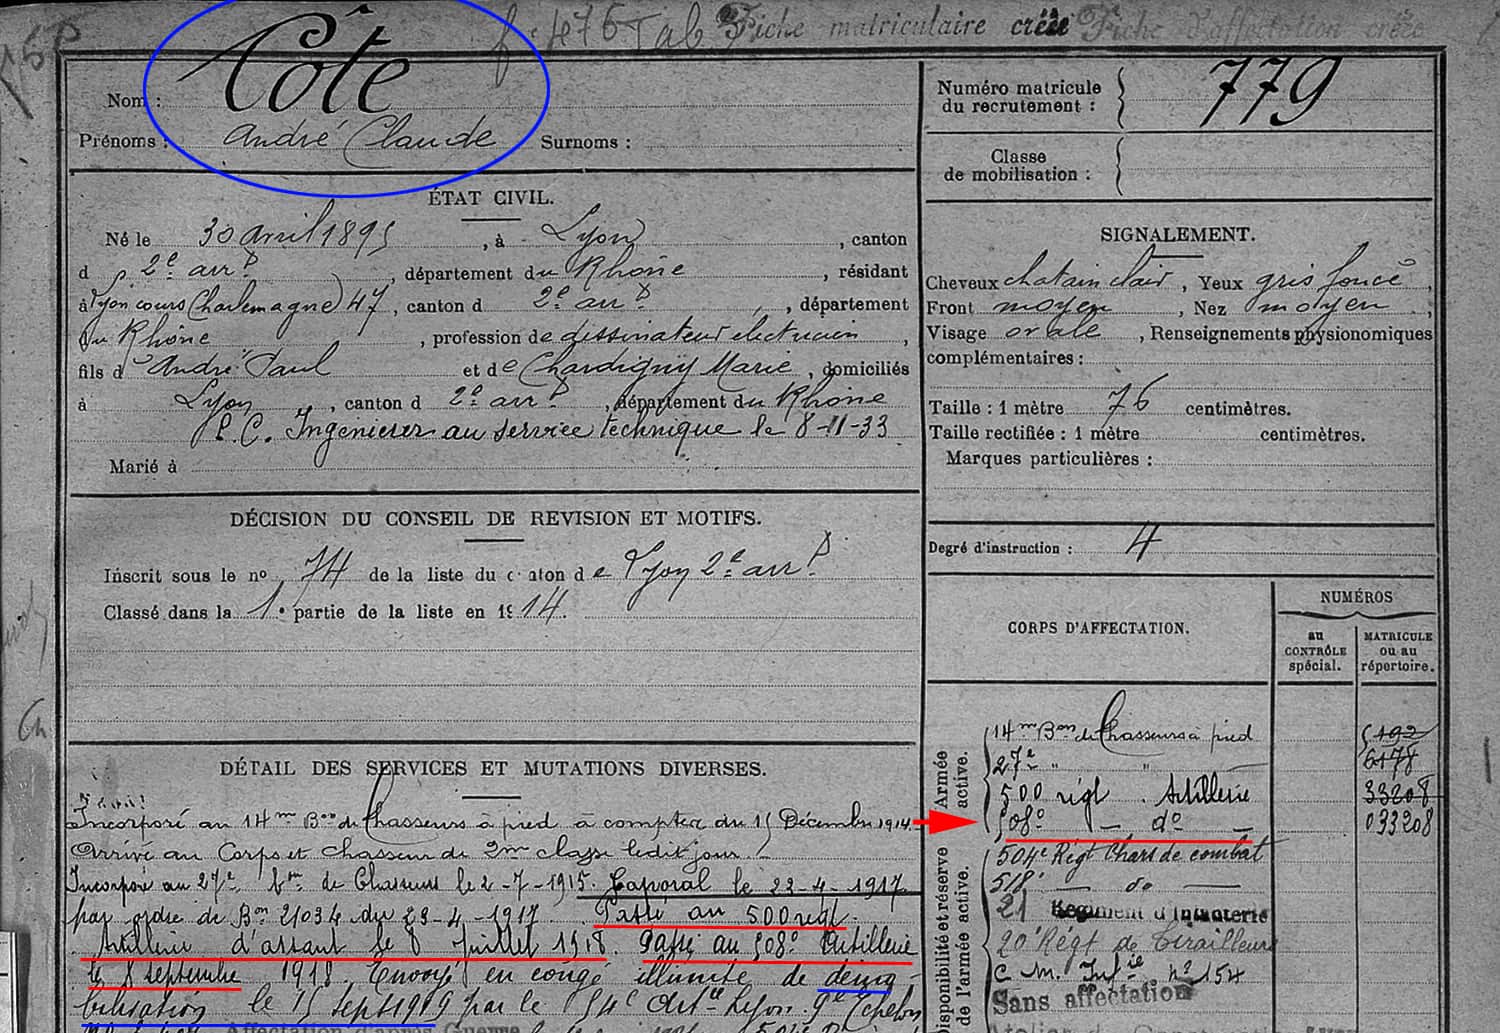 fo 475 Tab Fiche matriculaire créée Fiche d'affectation créée
Nom : Côte
Prénoms : André Claude Surnoms :
Numéro matricule du recrutement : 779
Classe de mobilisation :
ÉTAT CIVIL.
Né le 30 avril 1895, à Lyon, canton
d 2e arrt, département du Rhône, résidant
à Lyon cours Charlemagne 47, canton d 2e arrt, département
du Rhône, profession de dessinateur électricien,
fils d' André Paul et de Chardigny Marie, domiciliés
à Lyon, canton d 2e arrt, département du Rhône
P.C. Ingénieur au service technique le 8-11-33
Marié à
SIGNALEMENT.
Cheveux chatain clair, Yeux gris foncé,
Front moyen, Nez moyen,
Visage ovale, Renseignements physionomiques
complémentaires :
Taille : 1 mètre 76 centimètres.
Taille rectifiée : 1 mètre centimètres.
Marques particulières :
Degré d'instruction : 4
DÉCISION DU CONSEIL DE REVISION ET MOTIFS.
Inscrit sous le no 74 de la liste du canton de Lyon 2e arrt
Classé dans la 1e partie de la liste en 1914.
DÉTAIL DES SERVICES ET MUTATIONS DIVERSES.
Incorporé au 14me Bon de Chasseurs à pied à compter du 15 Décembre 1914.
Arrivé au Corps et chasseur de 2me classe ledit jour.
Incorporé au 27e Bon de Chasseurs le 2-7-1915. Caporal le 22-4-1917
par ordre de Bon 21034 du 23-4-1917. Passé au 500 régt
Artillerie d'assaut le 8 Juillet 1918. Passé au 508e Artillerie
le 8 septembre 1918. Envoyé en congé illimité de démo-
bilisation le 15 Sept 1919 par le 54e Artie Lyon. 9e Echelon
CORPS D'AFFECTATION.
NUMÉROS
au CONTRÔLE spécial.
MATRICULE ou au répertoire.
Armée active.
14me Bon de Chasseurs à pied 5192
27e " " 6178
500 régt Artillerie 33208
508e — do — 033208
Disponibilité et réserve de l'armée active.
504e Régt Chars de combat
518e — do —
21 Regiment d'Infanterie
20e Régt de Tirailleurs
C. M. Infie no 154
Sans affectation